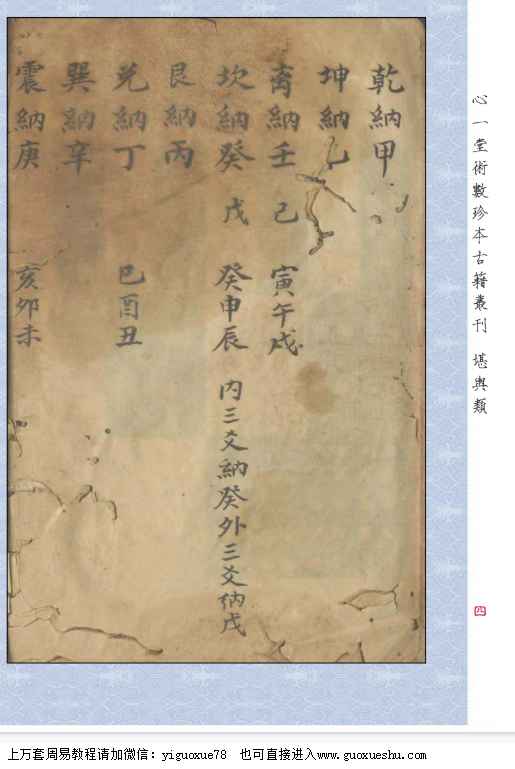 乾納甲
坤納乙
离納壬 己 寅午戌
坎納癸 戊 癸申辰 内三爻納癸外三爻纳戊
艮納丙
兑納丁 巳酉丑
巽納辛
震納庚 亥卯未
心一堂術數珍本古籍叢刊 堪輿類
四
上万套周易教程请加微信：yiguoxue78 也可直接进入www.guoxueshu.com